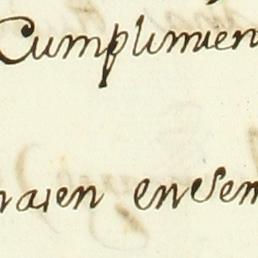 Cumplimien
naien enesem